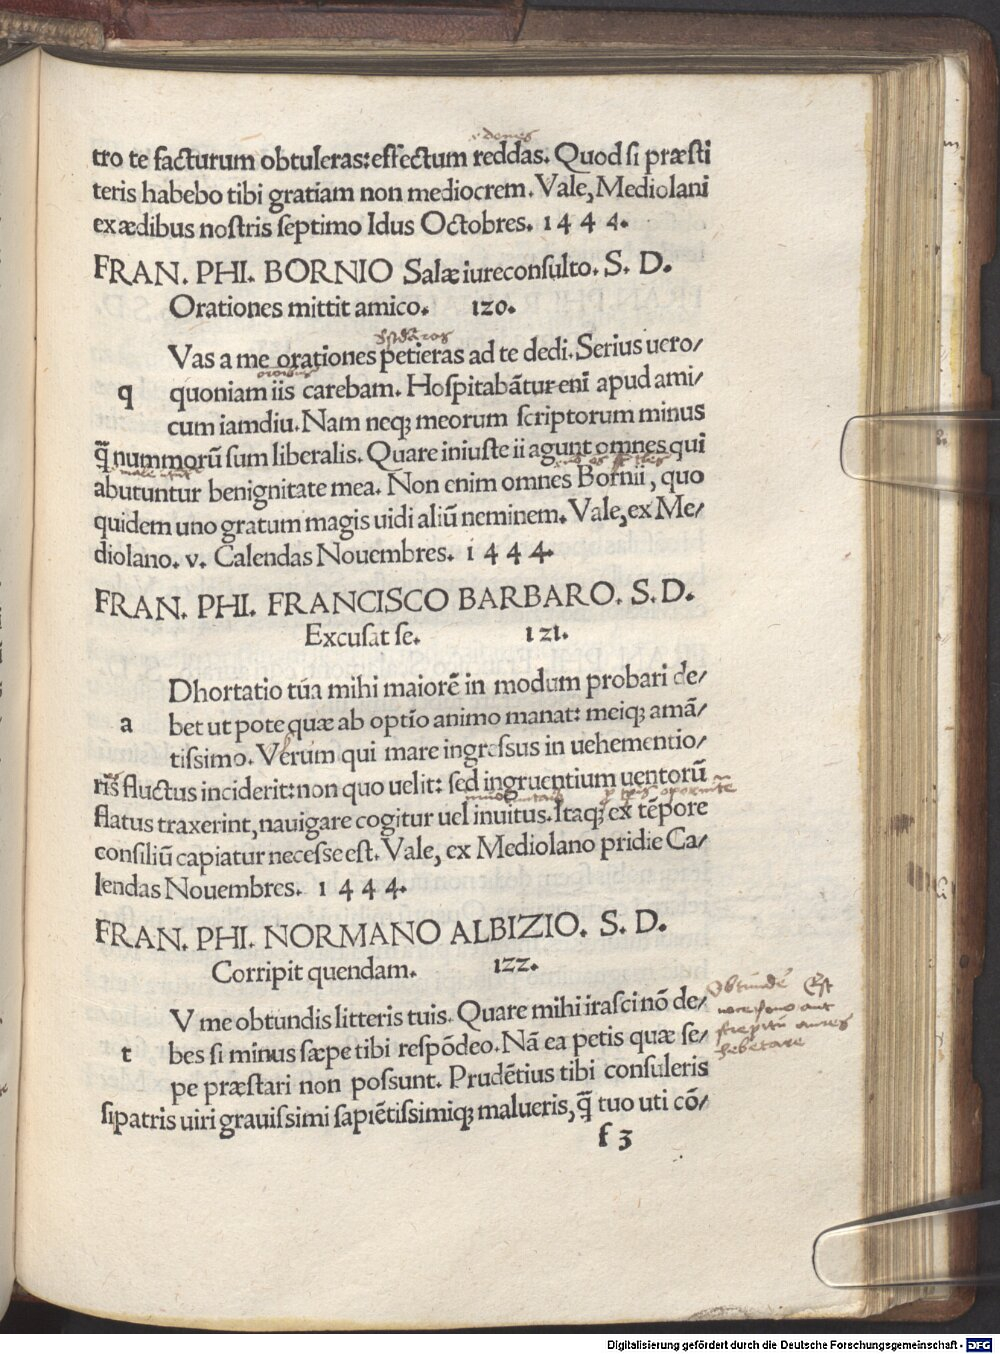 tro te facturum obtuleras: effectum reddas. Quod si præsti
teris habebo tibi gratiam non mediocrem. Vale, Mediolani
ex ædibus nostris septimo Idus Octobres. 1444.
FRAN. PHI. BORNIO Salæ iureconsulto. S. D.
Orationes mittit amico. 120.
Vas a me orationes petieras ad te dedi. Serius uero/
q quoniam iis carebam. Hospitabãtur eni apud ami/
cum iamdiu. Nam neqꝫ meorum scriptorum minus
q̃ nummorũ sum liberalis. Quare iniuste ii agunt omnes qui
abutuntur benignitate mea. Non enim omnes Bornii, quo
quidem uno gratum magis uidi aliũ neminem. Vale, ex Me/
diolano. v. Calendas Nouembres. 1444.
FRAN. PHI. FRANCISCO BARBARO. S. D.
Excusat se. 121.
Dhortatio tua mihi maiorẽ in modum probari de/
a bet ut pote quæ ab optĩo animo manat: meiqꝫ amã/
tissimo. Verum qui mare ingressus in uehementio/
ris fluctus inciderit: non quo uelit: sed ingruentium uentorũ
flatus traxerint, nauigare cogitur uel inuitus. Itaqꝫ ex tẽpore
consiliũ capiatur necesse est. Vale, ex Mediolano pridie Ca/
lendas Nouembres. 1444.
FRAN. PHI. NORMANO ALBIZIO. S. D.
Corripit quendam. 122.
V me obtundis litteris tuis. Quare mihi irasci nõ de/
t bes si minus sæpe tibi respõdeo. Nã ea petis quæ se/
pe præstari non possunt. Prudẽtius tibi consuleris
si patris uiri grauissimi sapiẽtissimiqꝫ malueris, q̃ tuo uti cõ/
f 3
Obtundẽ Est
aut
strepitu aures
hebetare
Digitalisierung gefördert durch die Deutsche Forschungsgemeinschaft - DFG